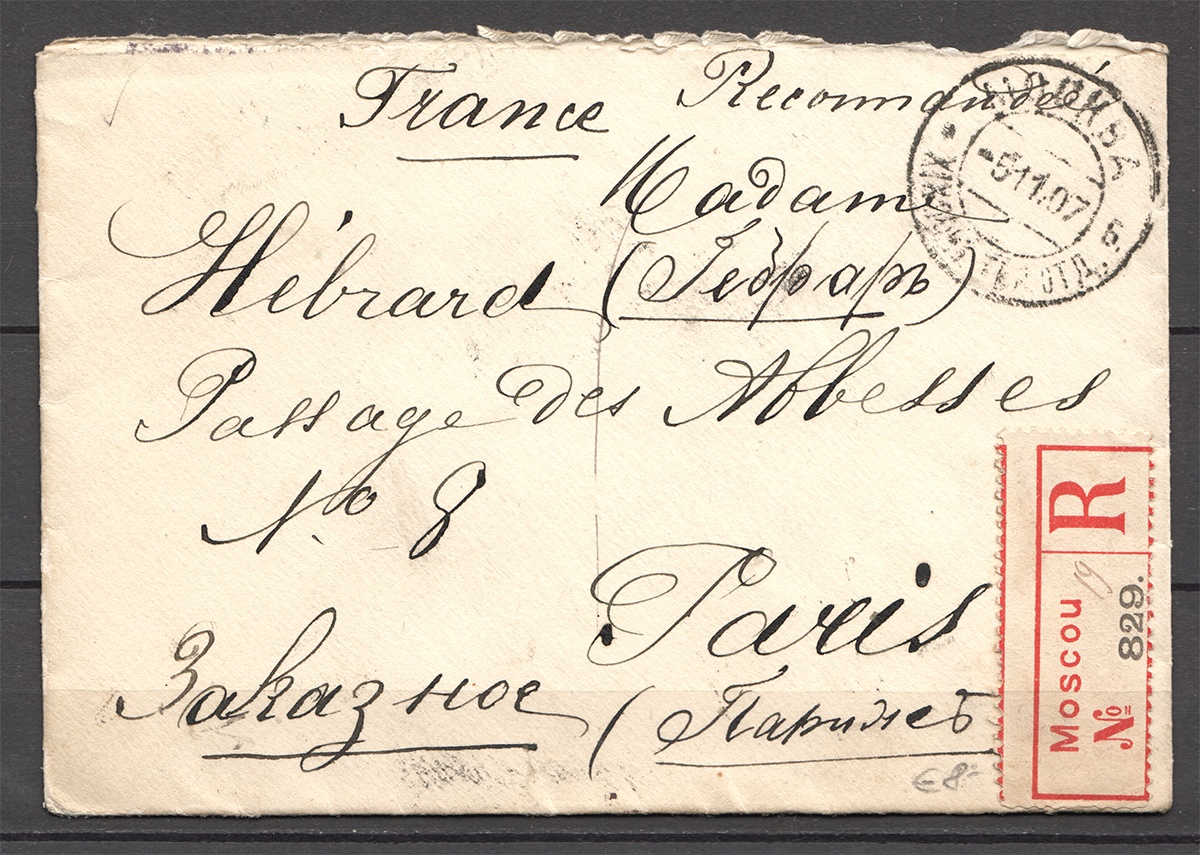 France Recommandée
Madame
Hébrard (Гебраръ)
Passage des Abbesses
No 8
Paris
Заказное (Парижъ)
МОСКВА
-5 11.07
ОТД. 5
R
Moscou 19
№ 829.
€ 8-